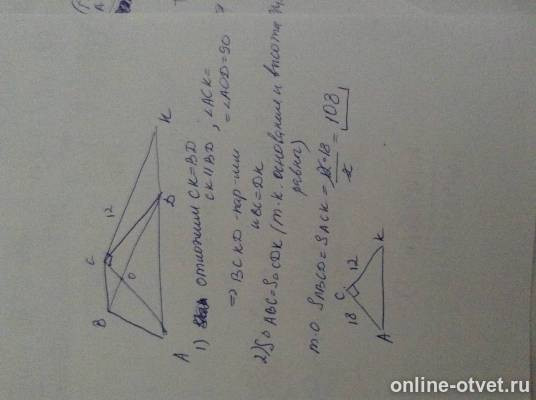 B
C
12
O
D
K
A
1) отложим CK=BD
CK || BD , ∠ACK=
=∠AOD=90
=> BCKD - пар-мм
и BC=DK
2) S△ABC=S△CDK (т.к. основания и высота
равны)
т.о SABCD=SACK= 12·18 / 2 = 108
C
18
12
A
K
online-otvet.ru